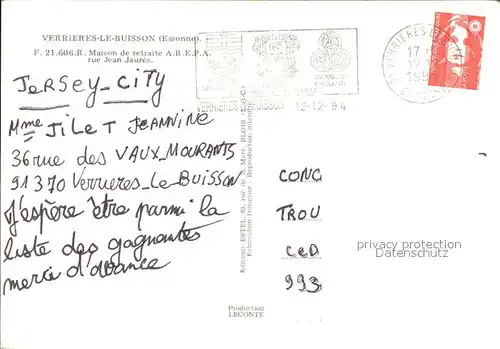 VERRIERES-LE-BUISSON (Essonne).
F. 21.606.R. Maison de retraite A.R.E.P.A.
rue Jean Jaurès.
VERRIERES
BUISSON 12-12-94
17
12
199
JERSEY-CITY
Mme JILET JEANNINE
36 rue des VAUX-MOURANTS
91370 Verrieres-Le-BUISSON
J'espère être parmi la
liste des gagnantes
merci d'avance
Editions ESTEL, 63, rue de St Marc, BLOIS
Fabrication française - Reproduction interdite
CONC
TROU
CeD
993
privacy protection
Datenschutz
Production
LECONTE